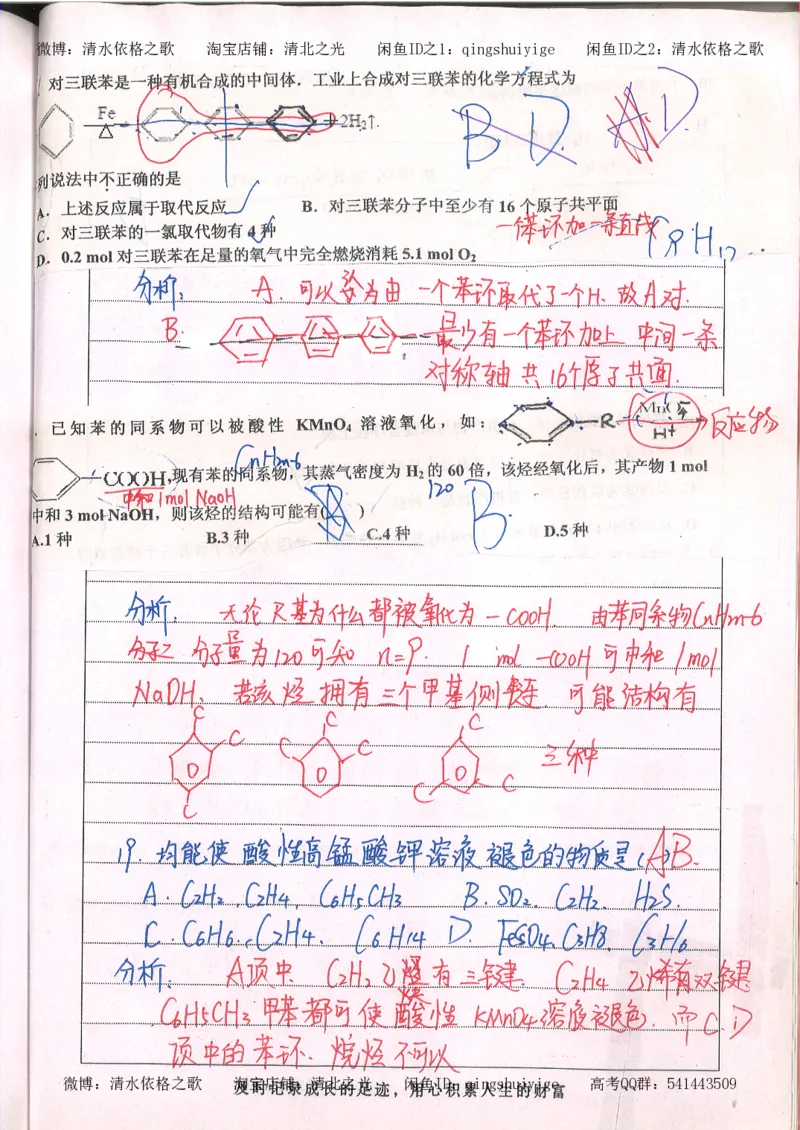 微博：清水依格之歌 淘宝店铺：清北之光 闲鱼ID之1：qingshuiyige 闲鱼ID之2：清水依格之歌
对三联苯是一种有机合成的中间体．工业上合成对三联苯的化学方程式为
Fe △ +2H₂↑.
B D D
列说法中不正确的是
A．上述反应属于取代反应 B．对三联苯分子中至少有 16 个原子共平面
一苯环加一条直线
C．对三联苯的一氯取代物有 4 种
D．0.2 mol 对三联苯在足量的氧气中完全燃烧消耗 5.1 mol O₂
分析： A. 可以答为由 一个苯环取代了一个H. 故A对.
B. 最少有一个苯环加上 中间一条
对称轴 共16个原子共面.
已知苯的同系物可以被酸性 KMnO₄ 溶液氧化，如： R H⁺ 反应物
COOH,现有苯的同系物，其蒸气密度为 H₂ 的 60 倍，该烃经氧化后，其产物 1 mol
CnH2n-6
中和1mol NaOH 120
中和 3 mol NaOH，则该烃的结构可能有( ) B
A.1 种 B.3 种 C.4 种 D.5 种
分析. 无论R基为什么都被氧化为 -COOH. 由苯同系物CnH2n-6
分子量为120可知 n=9. 1 mol -COOH可中和1mol
NaOH、若该烃拥有三个甲基侧链. 可能结构有
C C C C C C C C C 三种
19. 均能使酸性高锰酸钾溶液褪色的物质是( )AB.
A. C2H2, C2H4, C6H5CH3 B. SO2. C2H2. H2S.
C. C6H6. C2H4. C6H14 D. FeSO4. C3H8. C3H6
分析. A项中 C2H2 乙炔有三键. C2H4 乙烯有双键
C6H5CH3 甲苯都可使酸性 KMnO4溶液褪色. 而C.D
项中的苯环、烷烃不可以
微博：清水依格之歌 淘宝店铺：清北之光 闲鱼ID：qingshuiyige 高考QQ群：541443509
及时记录成长的足迹，用心积累人生的财富